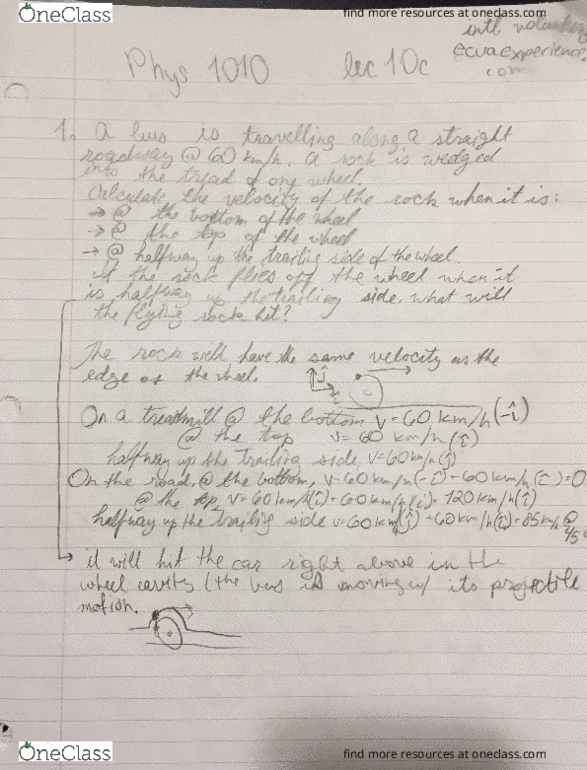 OneClass
find more resources at oneclass.com
intl volunteer
ecuaexperience.
com
Phys 1010 lec 10c
1. A bus is travelling along a straight
roadway @ 60 km/h. A rock is wedged
into the tread of one wheel.
Calculate the velocity of the rock when it is:
→ @ the bottom of the wheel
→ @ the top of the wheel
→ @ halfway up the trailing side of the wheel.
If the rock flies off the wheel when it
is halfway up the trailing side, what will
the flying rock hit?
The rock will have the same velocity as the
edge of the wheel.
ĵ
î
On a treadmill @ the bottom v=60 km/h(-î)
@ the top v=60 km/h(î)
halfway up the trailing side, v=60km/h(ĵ)
On the road, @ the bottom, v=60 km/h(-î)+60km/h(î)=0
@ the top, v=60km/h(î)+60km/h(î)=120km/h(î)
halfway up the trailing side v=60km/h(ĵ)+60km/h(î)=85km/h @
45°
→ it will hit the car right above in the
wheel cavity (the bus is moving w/ its projectile
motion.
OneClass
find more resources at oneclass.com